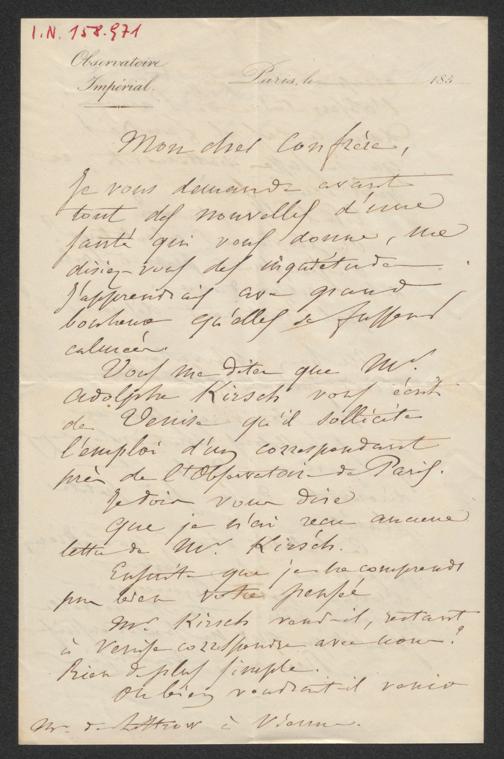 I.N. 158.971
Observatoire
Impérial.
Paris, le 185
Mon cher Confrère,
Je vous demande avant
tout des nouvelles d'une
santé qui vous donne, me
disiez-vous des inquiétudes.
J'apprendrais avec grand
bonheur qu'elles se fussent
calmées.
Vous me dites que Mr.
Adolphe Kirsch vous écrit
de Venise qu'il sollicite
l'emploi d'un correspondant
près de l'Observatoire de Paris.
Je dois vous dire
que je n'ai reçu aucune
lettre de Mr. Kirsch.
Ensuite que je ne comprends
pas bien votre pensée
Mr. Kirsch voudrait-il, restant
à Venise correspondre avec nous?
Rien de plus simple.
Ou bien voudrait il venir
Mr. de Littrow à Vienne.